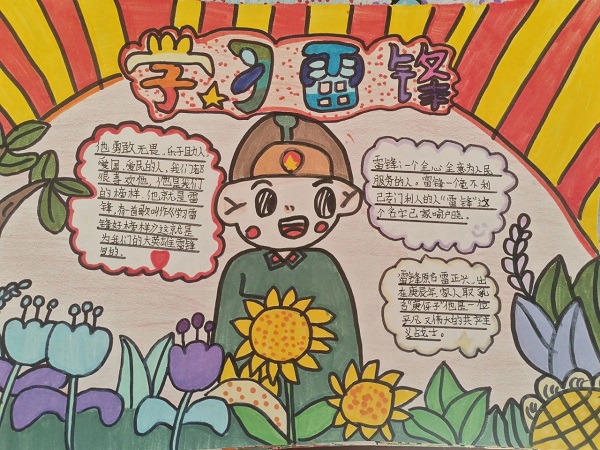 学习雷锋
他勇敢无畏、乐于助人、
爱国、爱民的人，我们都
很喜欢他，他是我们
的榜样。他就是雷
锋，有一首歌叫作《学习雷
锋好榜样》这就是
为我们的大英雄雷锋
写的。
雷锋：一个全心全意为人民
服务的人。雷锋一个毫不利
己专门利人的人“雷锋”这
个名字已家喻户晓。
雷锋原名雷正兴，出
在庚辰年，家人取乳
名“庚伢子”他是一位
平凡又伟大的共产主
义战士。